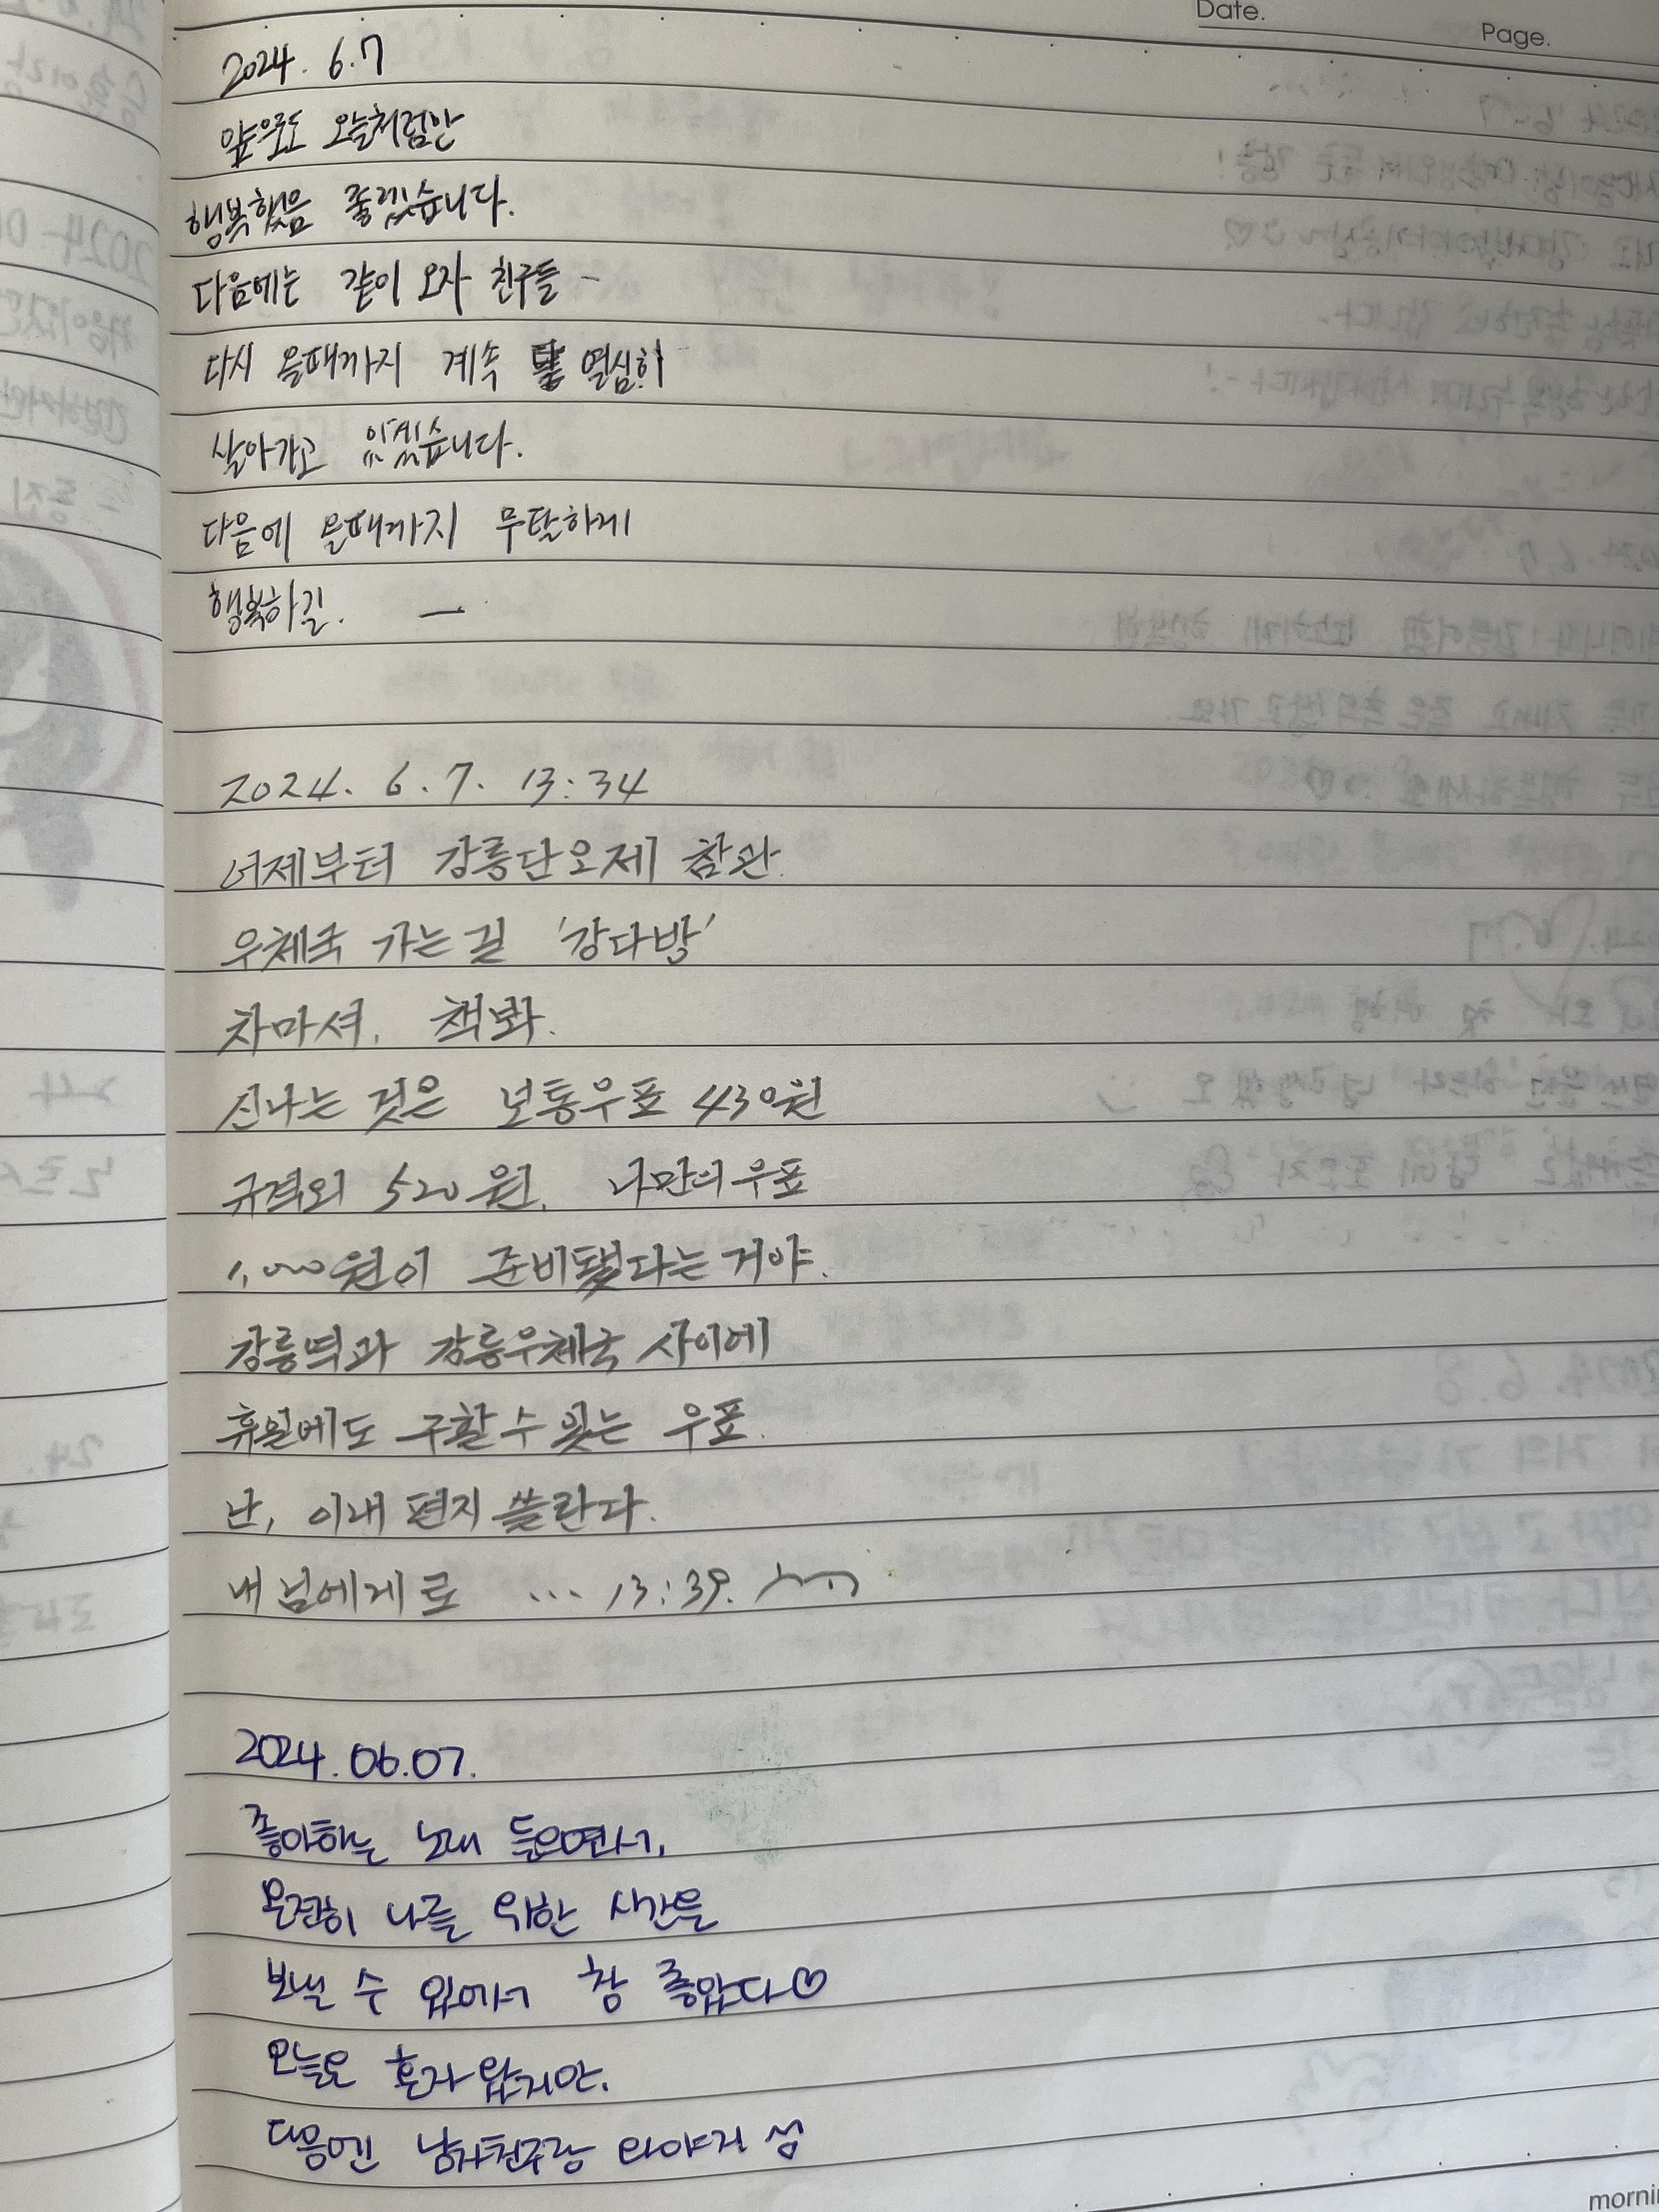 Date.
Page.
2024. 6.7
앞으로도 오늘처럼만
행복했음 좋겠습니다.
다음에는 같이 오자 친구들 -
다시 올때까지 계속 열심히
살아가고 있겠습니다.
다음에 올때까지 무탈하게
행복하길. —
2024. 6. 7. 13:34
어제부터 강릉단오제 참관.
우체국 가는 길 '강다방'
차마셔. 책봐.
신나는 것은 보통우표 430원
규격외 520원. 나만의 우표
1,000원이 준비됐다는 거야.
강릉역과 강릉우체국 사이에
휴일에도 구할 수 있는 우표.
난, 이내 편지 쓸란다.
내 님에게로 ... 13:39.
2024.06.07.
좋아하는 노래 들으면서,
온전히 나를 위한 시간을
보낼 수 있어서 참 좋았다♡
오늘은 혼자 왔지만,
다음엔 남자친구랑 와야지